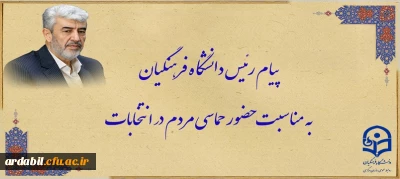 پیام رئیس دانشگاه فرهنگیان
به مناسبت حضور حماسی مردم در انتخابات
دانشگاه فرهنگیان
ardabil.cfu.ac.ir